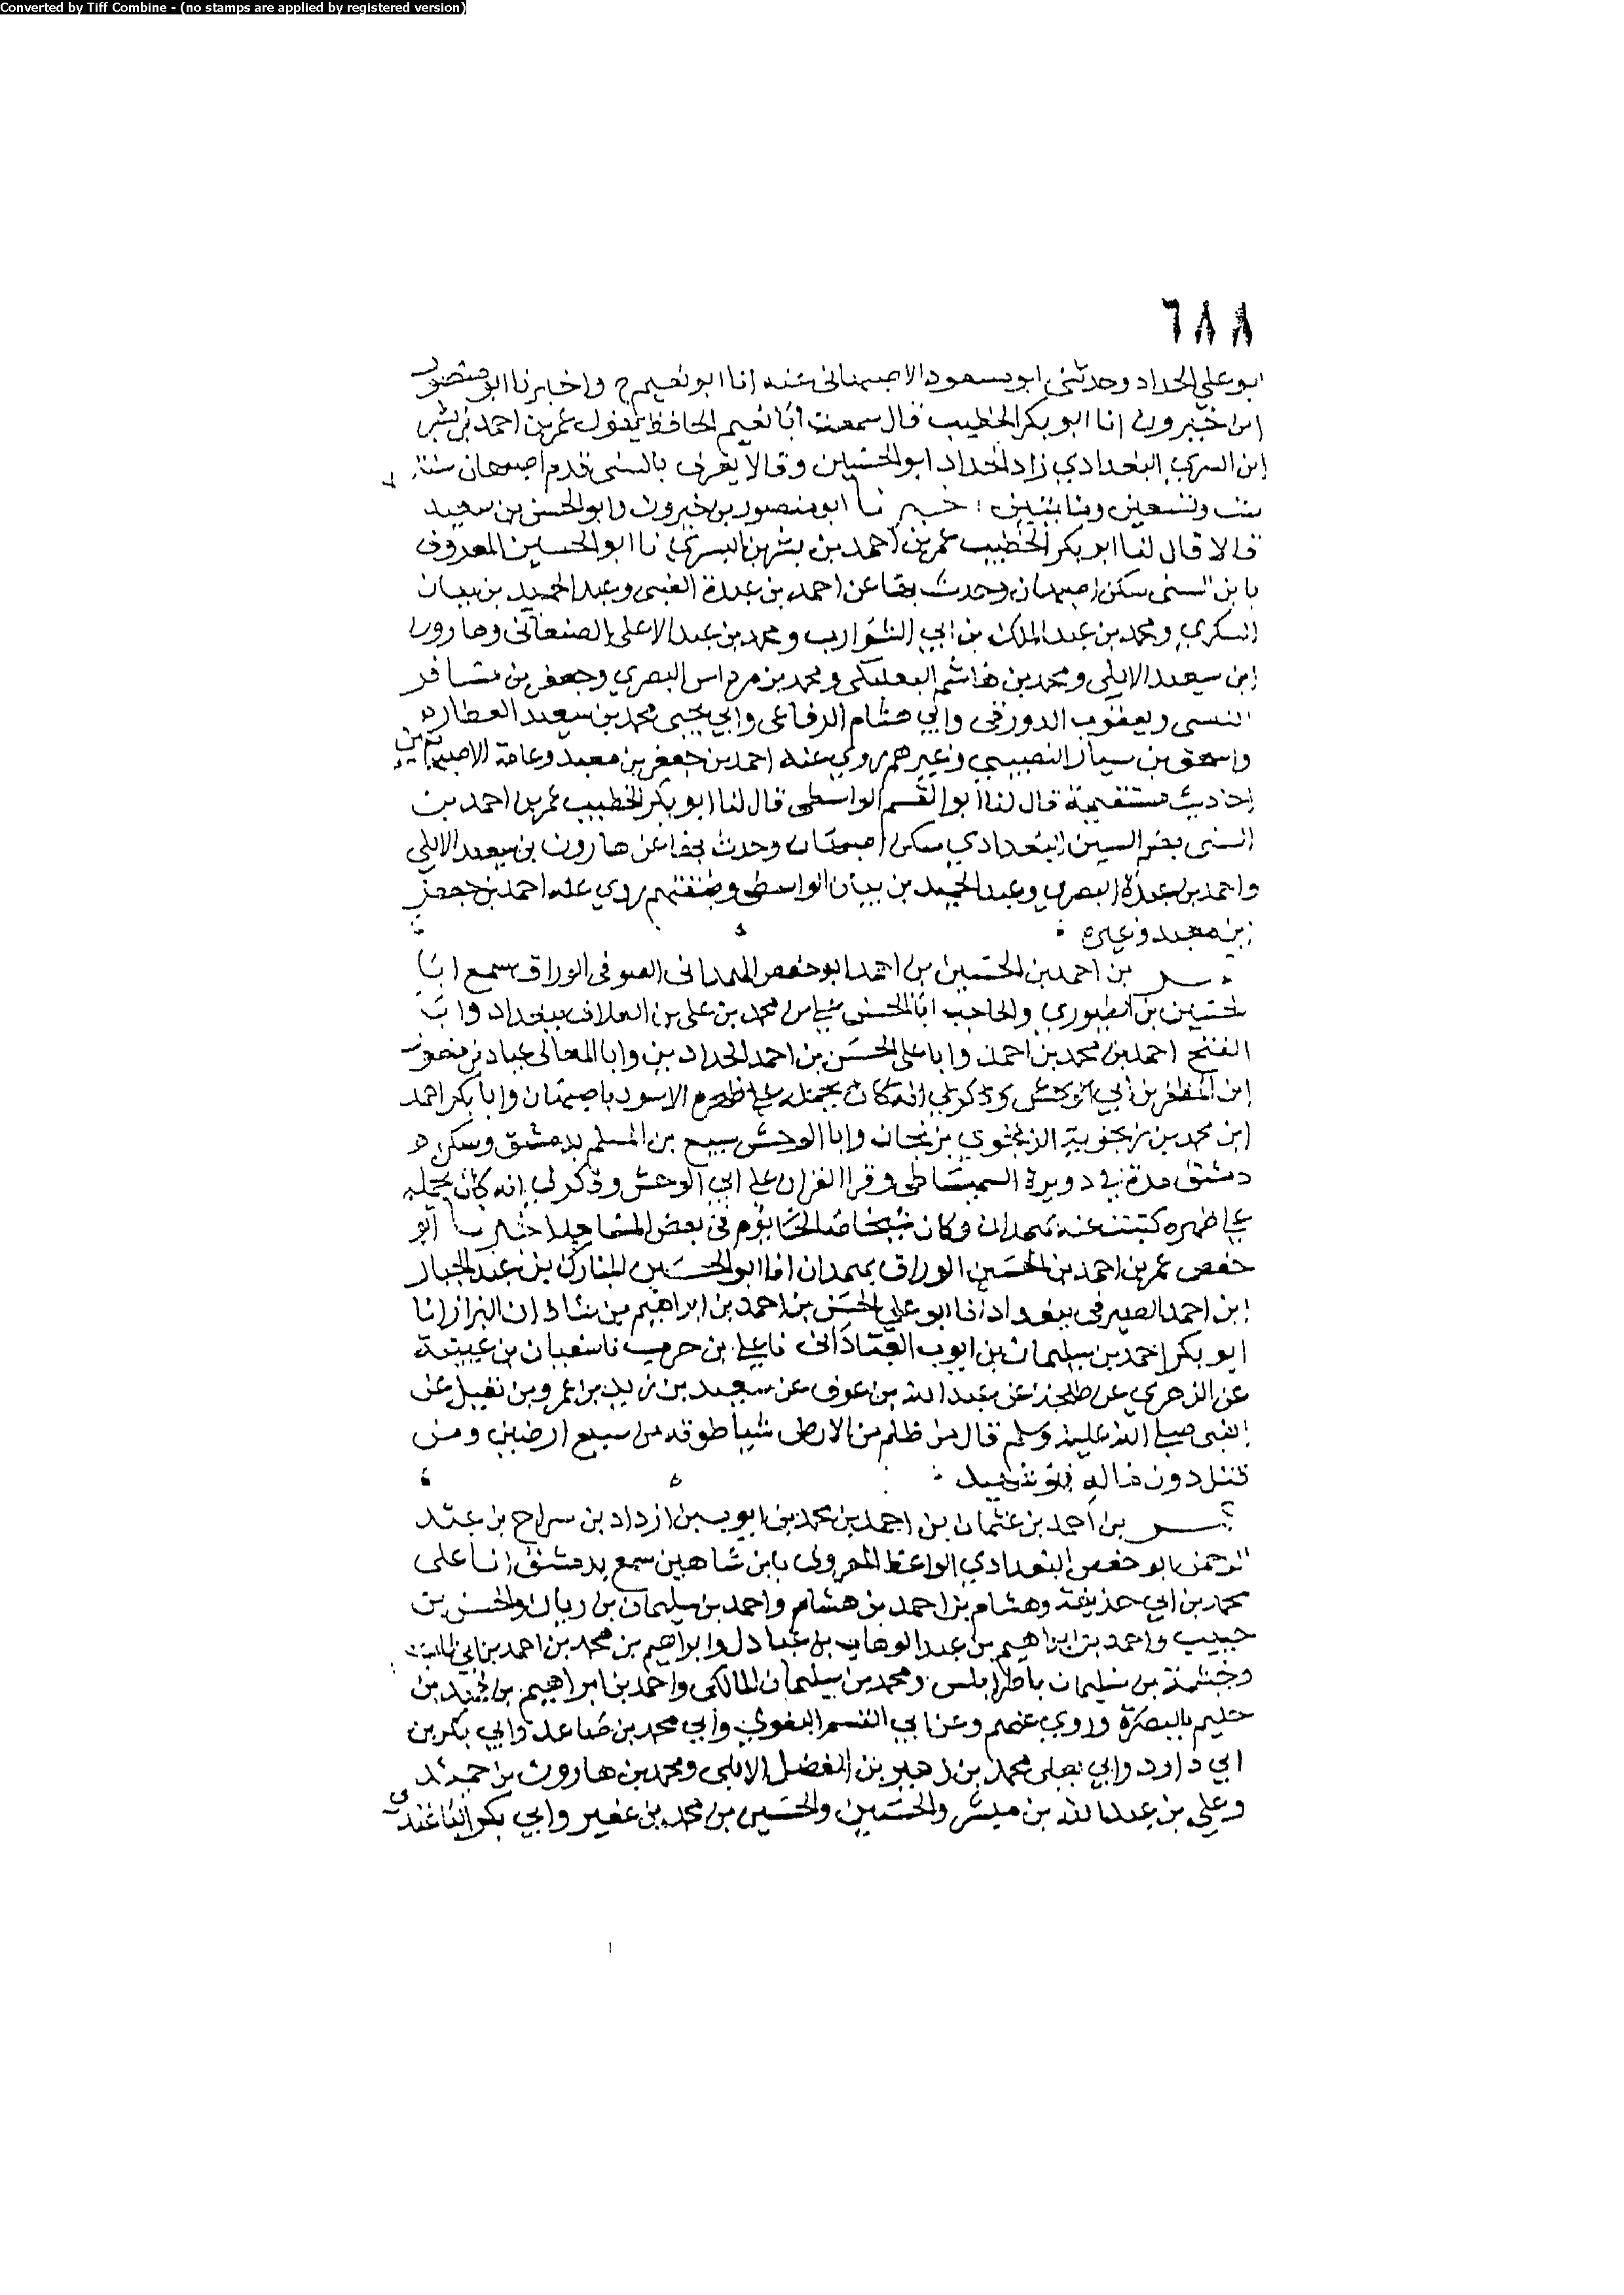 Converted by Tiff Combine - (no stamps are applied by registered version)
٦٨٨
ابو علي الحداد وحدثني ابو مسعود الاصبهاني عنه انا ابو نعيم ح واخبرنا ابو منصور
ابن خيرون انا ابو بكر الخطيب قال سمعت ابا نعيم الحافظ يقول عمر بن احمد بن بشر
ابن السري البغدادي زاد الحداد ابو الحسين وقالا يعرف بالسني قدم اصبهان سنة
ست وتسعين ومايتين : خبرنا ابو منصور بن خيرون وابو الحسن بن سعيد
قالا قال لنا ابو بكر الخطيب عمر بن احمد بن بشر بن السري نا ابو الحسين المعروف
بابن السني سكن اصبهان وحدث بها عن احمد بن عبدة الضبي وعبد الحميد بن بيان
السكري ومحمد بن عبد الملك بن ابي الشوارب ومحمد بن عبد الاعلى الصنعاني وهارون
ابن سعيد الايلي ومحمد بن هاشم البعلبكي ومحمد بن مرداس البصري وجعفر بن مسافر
التنسي ويعقوب الدورقي وابي هشام الرفاعي وابي يحيى محمد بن سعيد العطار
واسحق بن سيار النصيبي وغيرهم روي عنه احمد بن جعفر بن معبد وعامة الاصبهانيين
احاديث مستقيمة قال لنا ابو القسم الواسطي قال لنا ابو بكر الخطيب عمر بن احمد بن
السني بضم السين البغدادي سكن اصبهان وحدث بها عن هارون بن سعيد الايلي
واحمد بن عبدة البصري وعبد الحميد بن بيان الواسطي وطبقتهم روي عنه احمد بن جعفر
بن معبد وغيره
عمر بن احمد بن الحسين بن احمد ابو حفص الهمداني الصوفي الوراق سمع ابا
الحسين بن الطيوري والحاجب ابا الحسن علي بن محمد بن علي بن العلاف ببغداد وابا
الفتح احمد بن محمد بن احمد وابا علي الحسن بن احمد الحدادين وابا المعالي عباد بن منصور
ابن المظفر بن ابي الوحش وذكر لي انه كان يحمله على ظهره الاسود باصبهان وابا بكر احمد
ابن محمد بن زنجوية الزنجوي بزنجان وابا الوحش سبيع بن المسلم بدمشق وسكن
دمشق مدة في دويرة السميساطي وقرا القران على ابي الوحش وذكر لي انه كان يحمله
على ظهره كتبت عنه بهمدان وكان شيخا صالحا يؤم في بعض المساجد اخبرنا ابو
حفص عمر بن احمد بن الحسين الوراق بهمدان انا ابو الحسين المبارك بن عبد الجبار
ابن احمد الصيرفي ببغداد انا ابو علي الحسن بن احمد بن ابراهيم بن شاذان البزاز انا
ابو بكر احمد بن سليمان بن ايوب العباداني نا علي بن حرب نا سفيان بن عيينة
عن الزهري عن طلحة عن عبد الله بن عوف عن سعيد بن زيد بن عمرو بن نفيل عن
النبي صلى الله عليه وسلم قال من ظلم من الارض شيا طوقه من سبع ارضين ومن
قتل دون ماله فهو شهيد
عمر بن احمد بن عثمان بن احمد بن محمد بن ايوب بن ازداد بن سراح بن عبد
الرحمن ابو حفص البغدادي الواعظ المعروف بابن شاهين سمع بدمشق انا علي
محمد بن ابي حذيفة وهشام بن احمد بن هشام واحمد بن سليمان بن ريان والحسن بن
حبيب واحمد بن ابراهيم بن عبد الوهاب بن عبادل وابراهيم بن محمد بن احمد بن ابي ثابت
وخيثمة بن سليمان باطرابلس ومحمد بن سليمان المالكي واحمد بن ابراهيم بن
حليم بالبصرة وروي عنهم وعن ابي القسم البغوي وابي محمد بن صاعد وابي بكر بن
ابي داود وابي يعلى محمد بن زهير بن الفضل الايلي ومحمد بن هارون بن حميد
وعلي بن عبد الله بن مبشر والحسين والحسين بن محمد بن عفير وابي بكر الباغندي